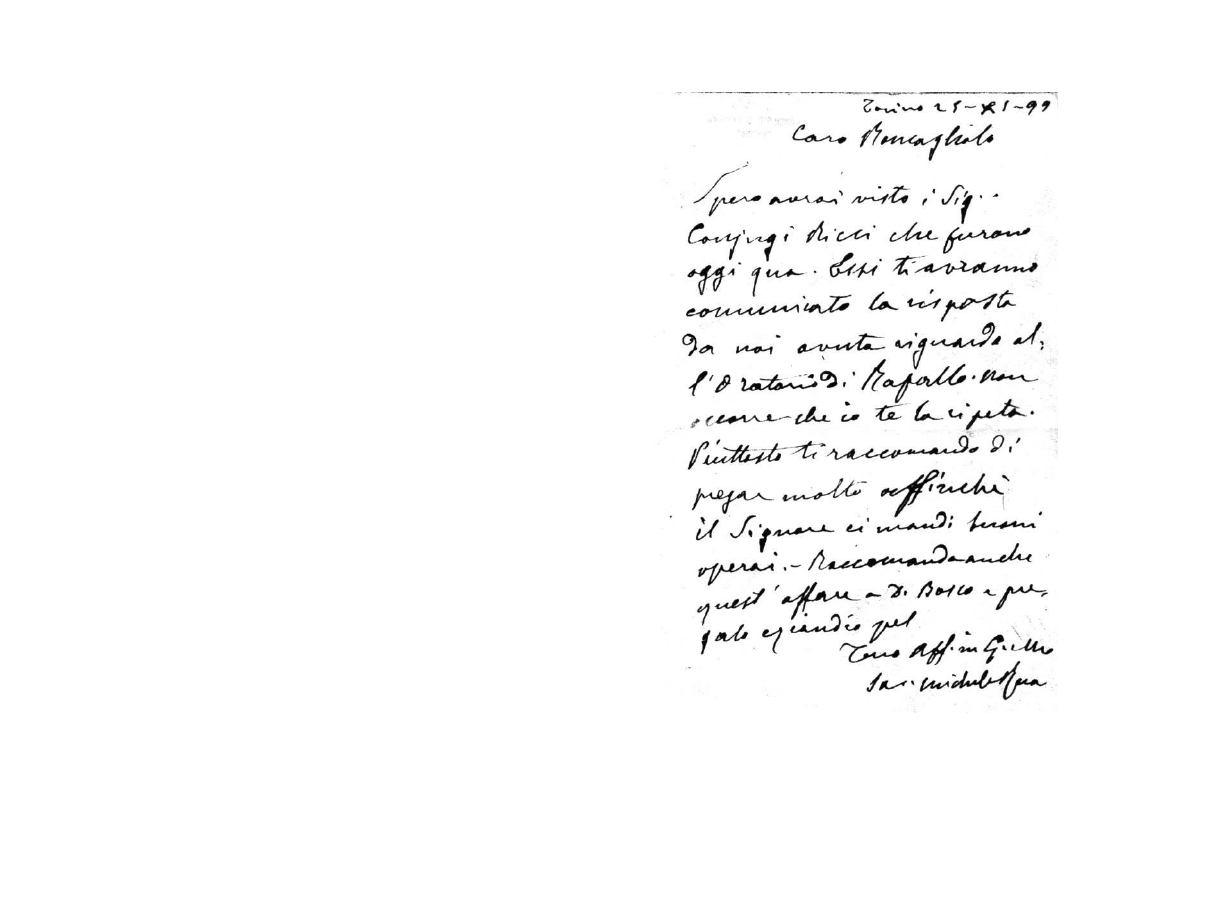 Torino 25-XI-99
Caro Roncagliolo
Spero avrai visto i Sig.
Conjugi Ricci che furono
oggi qua. Essi ti avranno
comunicato la risposta
da noi avuta riguardo al-
l'Oratorio di Rapallo. Non
occorre che io te la ripeta.
Piuttosto ti raccomando di
pregar molto affinchè
il Signore ci mandi buoni
operai. - Raccomanda anche
quest'affare a D. Bosco e pre-
galo eziandio pel
Tuo Aff. in G. e M.
Sac. Michele Rua